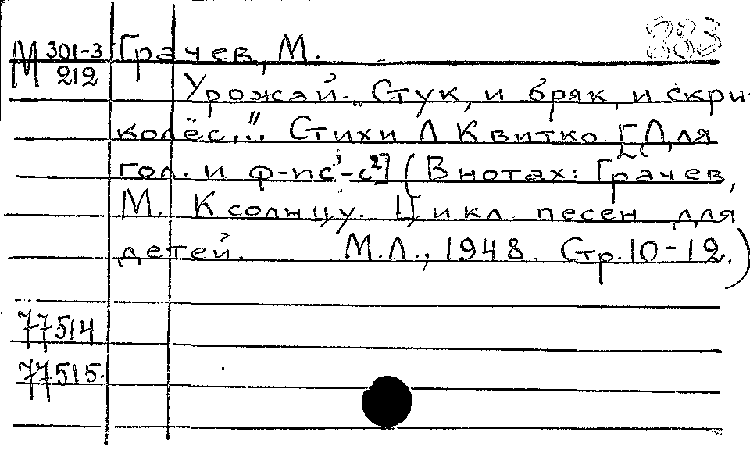 М 301-3
212
Грачев, М.
383
Урожай. „Стук, и бряк, и скри-
колёс..." Стихи Л Квитко [Для
гол. и ф-п с¹-с²] (В нотах: Грачев,
М. К солнцу. Цикл песен для
детей. М.Л., 1948. Стр. 10-12.)
77514
77515